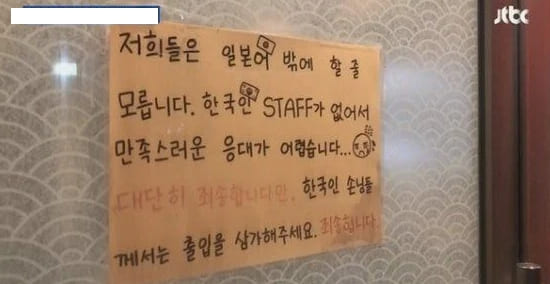 jtbc
저희들은 일본어 밖에 할 줄
모릅니다. 한국인 STAFF가 없어서
만족스러운 응대가 어렵습니다...
대단히 죄송합니다만, 한국인 손님들
께서는 출입을 삼가해주세요. 죄송합니다.